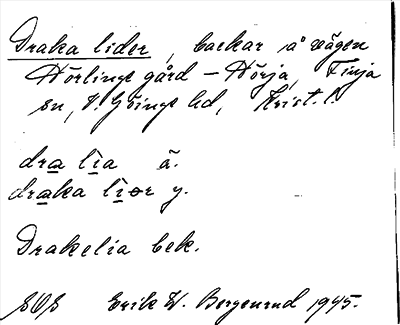 Draka lider, backar å vägen
Hörlinge gård – Hörja, Finja
sn, V. Göinge hd, Krist. l.
dra lia ä.
draka lior y.
Drakelia bek.
SOS Erik W. Bergenrud 1945.